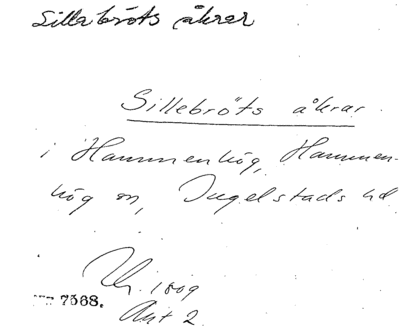 Sillebröts åkrar
Sillebröts åkrar
i Hammenhög, Hammen-
hög sn, Ingelstads hd
1809
7568.
Akt 2